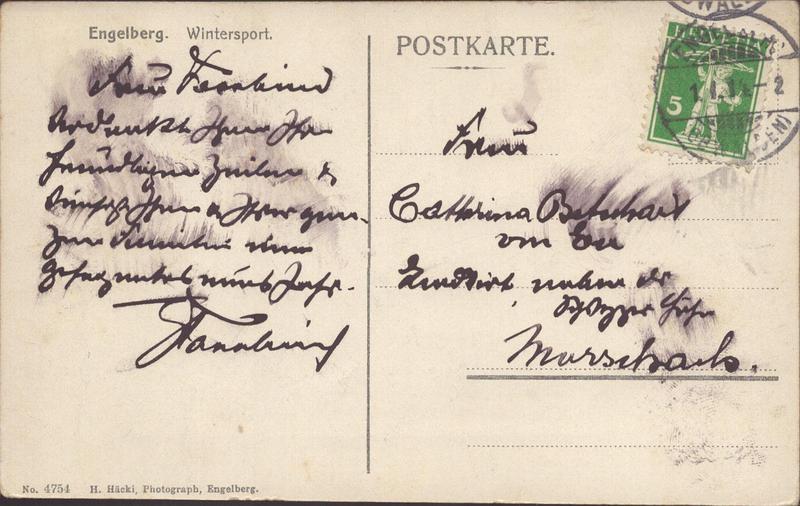 Engelberg. Wintersport.
POSTKARTE.
5
Frau
verdankt Ihnen Ihre
freundlichen Zeilen &
wünscht Ihnen & Ihrer gan-
zen Familie ein
gesegnetes neues Jahr.
Frau
Cathrina Betschart
von Euw
neben der
Morschach.
No. 4754 H. Häcki, Photograph, Engelberg.